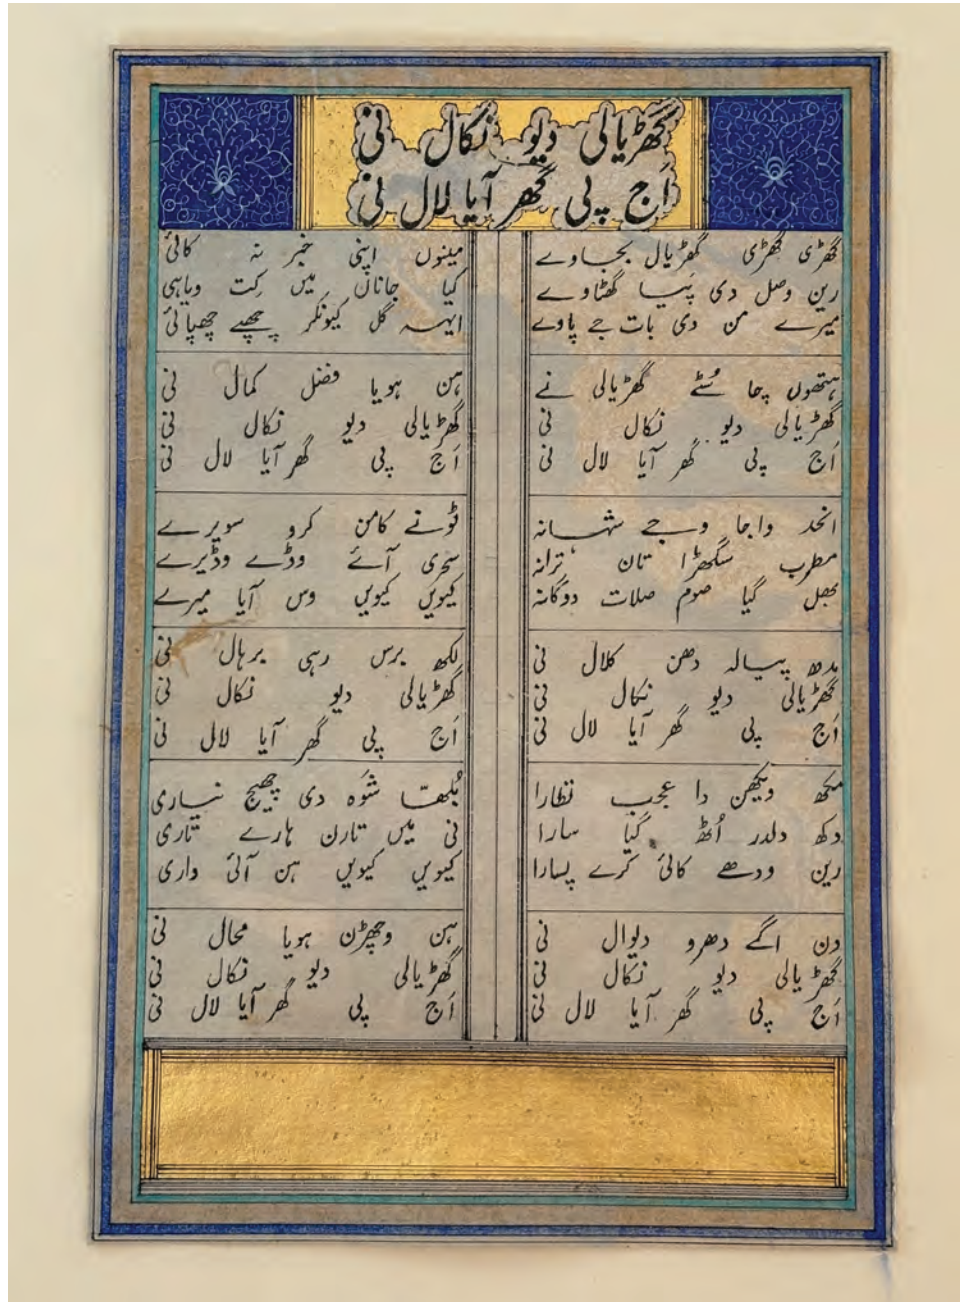 گھڑیالی دیو نکال نی
اَج پی گھر آیا لال نی
گھڑی گھڑی گھڑیال بجاوے
رین وصل دی پَیا گھٹاوے
میرے من دی بات جے پاوے
ہتھوں چا سُٹے گھڑیالی نے
گھڑیالی دیو نکال نی
اَج پی گھر آیا لال نی
انحد واجا وجے شہانہ
مطرب سگھڑا تان ترانہ
بھل گیا صوم صلات دوگانہ
مدھ پیالہ دھن کلال نی
گھڑیالی دیو نکال نی
اَج پی گھر آیا لال نی
مکھ ویکھن دا عجب نظارا
دکھ دلدر اُٹھ گیا سارا
رین ودھے کائی کرے پسارا
دن اگے دھرو دیوال نی
گھڑیالی دیو نکال نی
اَج پی گھر آیا لال نی
مینوں اپنی خبر نہ کائی
کیا جاناں میں کت ویاہی
ایہہ گل کیونکر چھپے چھپائی
ہن ہویا فضل کمال نی
گھڑیالی دیو نکال نی
اَج پی گھر آیا لال نی
ٹونے کامن کرو سویرے
سحری آئے وڈے وڈیرے
کیویں کیویں وس آیا میرے
لکھ برس رہی برہال نی
گھڑیالی دیو نکال نی
اَج پی گھر آیا لال نی
بُلھا شَوہ دی چھیج نیاری
نی میں تارن ہارے تاری
کیویں کیویں ہن آئی واری
ہن وچھڑن ہویا محال نی
گھڑیالی دیو نکال نی
اَج پی گھر آیا لال نی